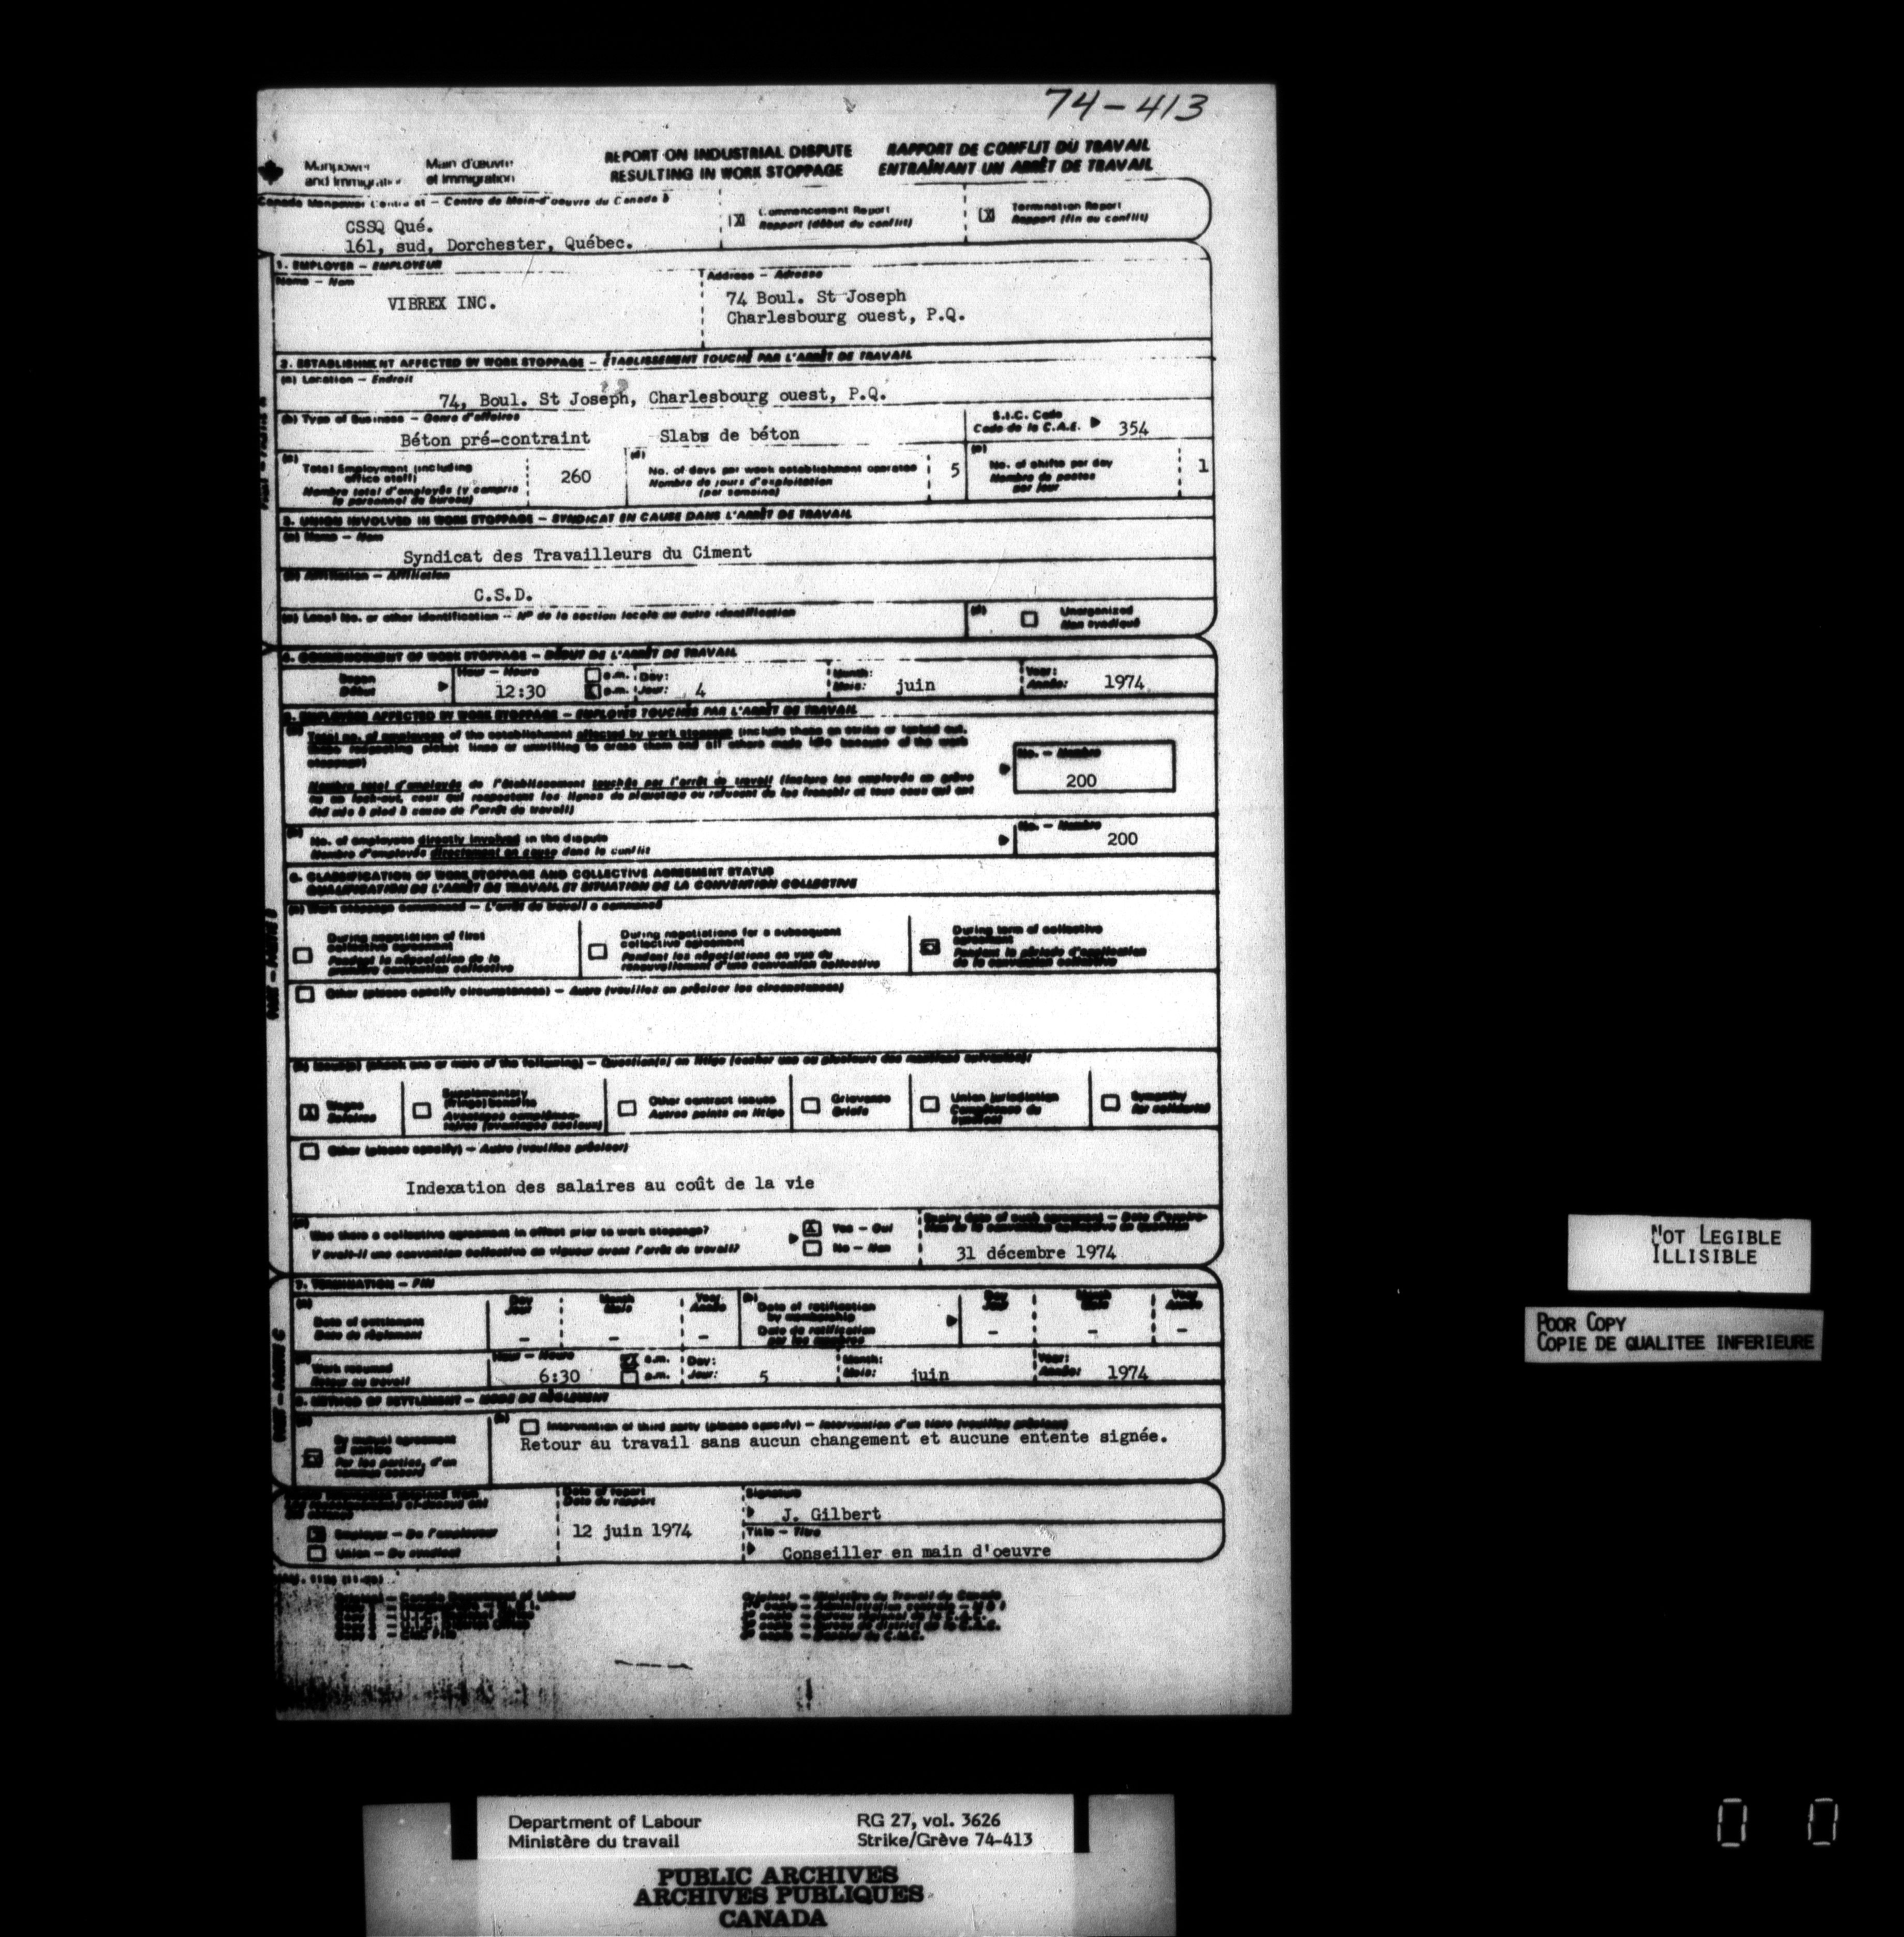 74-413
Manpower and Immigration
Main d'œuvre et Immigration
REPORT ON INDUSTRIAL DISPUTE RESULTING IN WORK STOPPAGE
RAPPORT DE CONFLIT DU TRAVAIL ENTRAÎNANT UN ARRÊT DE TRAVAIL
Canada Manpower Centre at — Centre de Main-d'oeuvre du Canada à
CSSQ Qué.
161, sud, Dorchester, Québec.
X Commencement Report
Rapport (début du conflit)
X Termination Report
Rapport (fin du conflit)
1. EMPLOYER — EMPLOYEUR
Name — Nom
VIBREX INC.
Address — Adresse
74 Boul. St Joseph
Charlesbourg ouest, P.Q.
2. ESTABLISHMENT AFFECTED BY WORK STOPPAGE — ÉTABLISSEMENT TOUCHÉ PAR L'ARRÊT DE TRAVAIL
(a) Location — Endroit
74, Boul. St Joseph, Charlesbourg ouest, P.Q.
(b) Type of Business — Genre d'affaires
Béton pré-contraint Slabs de béton
S.I.C. Code
Code de la C.A.E. 354
(c) Total Employment (including office staff)
Nombre total d'employés (y compris le personnel de bureau)
260
(d) No. of days per week establishment operates
Nombre de jours d'exploitation (par semaine)
5
(e) No. of shifts per day
Nombre de postes par jour
1
3. UNION INVOLVED IN WORK STOPPAGE — SYNDICAT EN CAUSE DANS L'ARRÊT DE TRAVAIL
(a) Name — Nom
Syndicat des Travailleurs du Ciment
(b) Affiliation — Affiliation
C.S.D.
(c) Local No. or other identification — Nº de la section locale ou autre identification
(d) Unorganized
Non syndiqué
4. COMMENCEMENT OF WORK STOPPAGE — DÉBUT DE L'ARRÊT DE TRAVAIL
Began
Début
Hour — Heure
12:30
a.m.
X p.m.
Day:
Jour: 4
Month:
Mois: juin
Year:
Année: 1974
5. EMPLOYEES AFFECTED BY WORK STOPPAGE — EMPLOYÉS TOUCHÉS PAR L'ARRÊT DE TRAVAIL
(a) Total no. of employees of the establishment affected by work stoppage (include those on strike or locked out,
those respecting picket lines or unwilling to cross them and all others made idle because of the work
stoppage)
Nombre total d'employés de l'établissement touchés par l'arrêt de travail (inclure les employés en grève
ou en lock-out, ceux qui respectent les lignes de piquetage ou refusent de les franchir et tous ceux qui ont
été mis à pied à cause de l'arrêt de travail)
No. — Nombre
200
(b) No. of employees directly involved in the dispute
Nombre d'employés directement en cause dans le conflit
No. — Nombre
200
6. CLASSIFICATION OF WORK STOPPAGE AND COLLECTIVE AGREEMENT STATUS
QUALIFICATION DE L'ARRÊT DE TRAVAIL ET SITUATION DE LA CONVENTION COLLECTIVE
(a) Work stoppage commenced — L'arrêt de travail a commencé
During negotiation of first collective agreement
Pendant la négociation de la première convention collective
During negotiations for a subsequent collective agreement
Pendant les négociations en vue du renouvellement d'une convention collective
X During term of collective agreement
Pendant la période d'application de la convention collective
Other (please specify circumstances) — Autre (veuillez en préciser les circonstances)
(b) Issue(s) (check one or more of the following) — Question(s) en litige (cocher une ou plusieurs des mentions suivantes):
X Wages
Salaires
Supplementary (fringe) benefits
Avantages complémentaires (avantages sociaux)
Other contract issues
Autres points en litige
Grievance
Griefs
Union jurisdiction
Compétence du syndicat
Sympathy
Par solidarité
Other (please specify) — Autre (veuillez préciser)
Indexation des salaires au coût de la vie
(c) Was there a collective agreement in effect prior to work stoppage?
Y avait-il une convention collective en vigueur avant l'arrêt de travail?
X Yes — Oui
No — Non
Expiry date of such agreement — Date d'expiration de la convention collective en question
31 décembre 1974
7. TERMINATION — FIN
(a) Date of settlement
Date du règlement
Day
Jour
–
Month
Mois
–
Year
Année
–
(b) Date of ratification by membership
Date de ratification par les membres
Day
Jour
–
Month
Mois
–
Year
Année
–
Work resumed
Retour au travail
Hour — Heure
6:30
X a.m.
p.m.
Day:
Jour: 5
Month:
Mois: juin
Year:
Année: 1974
8. METHOD OF SETTLEMENT — MODE DE RÈGLEMENT
(a) X By mutual agreement of parties
Par les parties, d'un commun accord
(b) Intervention of third party (please specify) — Intervention d'un tiers (veuillez préciser)
Retour au travail sans aucun changement et aucune entente signée.
X Employer — De l'employeur
Union — Du syndicat
Date of report
Date du rapport
12 juin 1974
Signature
J. Gilbert
Title — Titre
Conseiller en main d'oeuvre
Original — Canada Department of Labour
Original — Ministère du Travail du Canada
NOT LEGIBLE
ILLISIBLE
POOR COPY
COPIE DE QUALITEE INFERIEURE
Department of Labour
Ministère du travail
RG 27, vol. 3626
Strike/Grève 74-413
PUBLIC ARCHIVES
ARCHIVES PUBLIQUES
CANADA
0 0